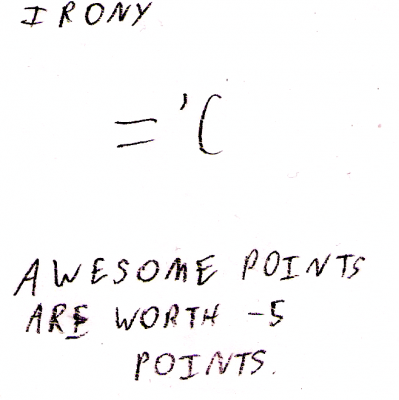 IRONY
='(
AWESOME POINTS
ARE WORTH -5
POINTS.